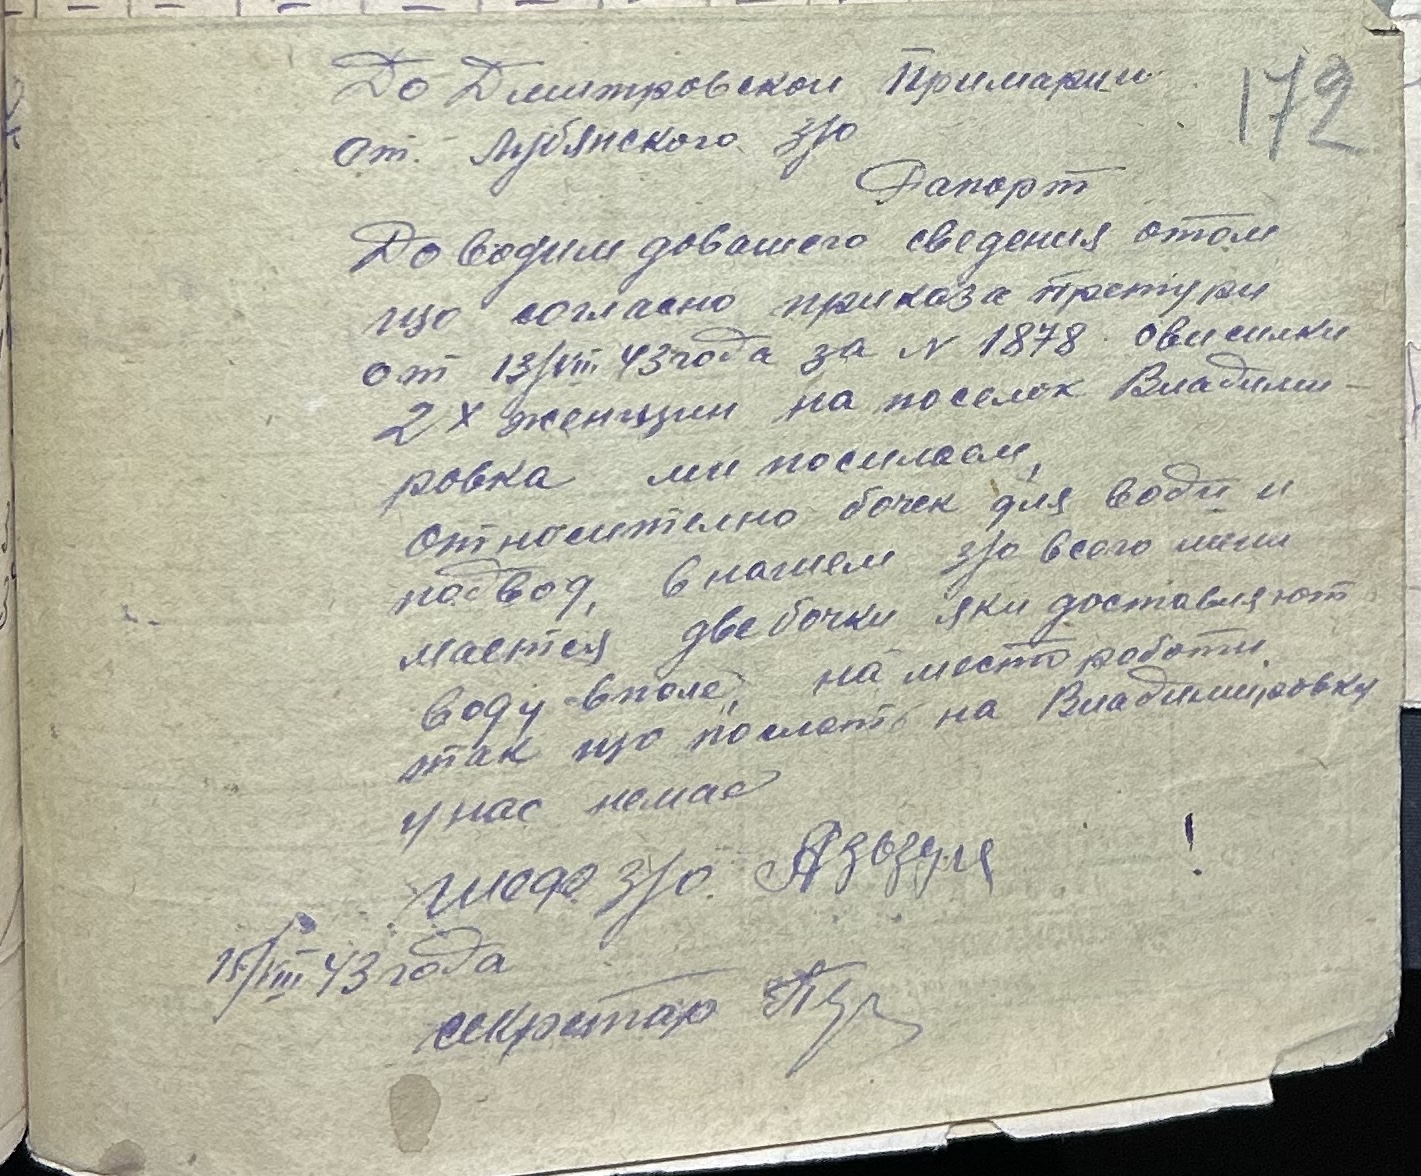 172
До Дмитровскои Примарии
от. Лубянского з/о
Рапорт
Доводим довашего сведения отом
що согласно приказа Претури
от 13/VIII 43 года за N 1878. овисилки
2х женщин на поселок Владими-
ровка ми посилаем,
относително бочек для води и
подвод, внашем з/о всего мени
мается две бочки яки доставляют
воду вполе, на место роботи
так що послать на Владимировку
у нас немае
шеф з/о.
!
15/VIII 43 года
секретар